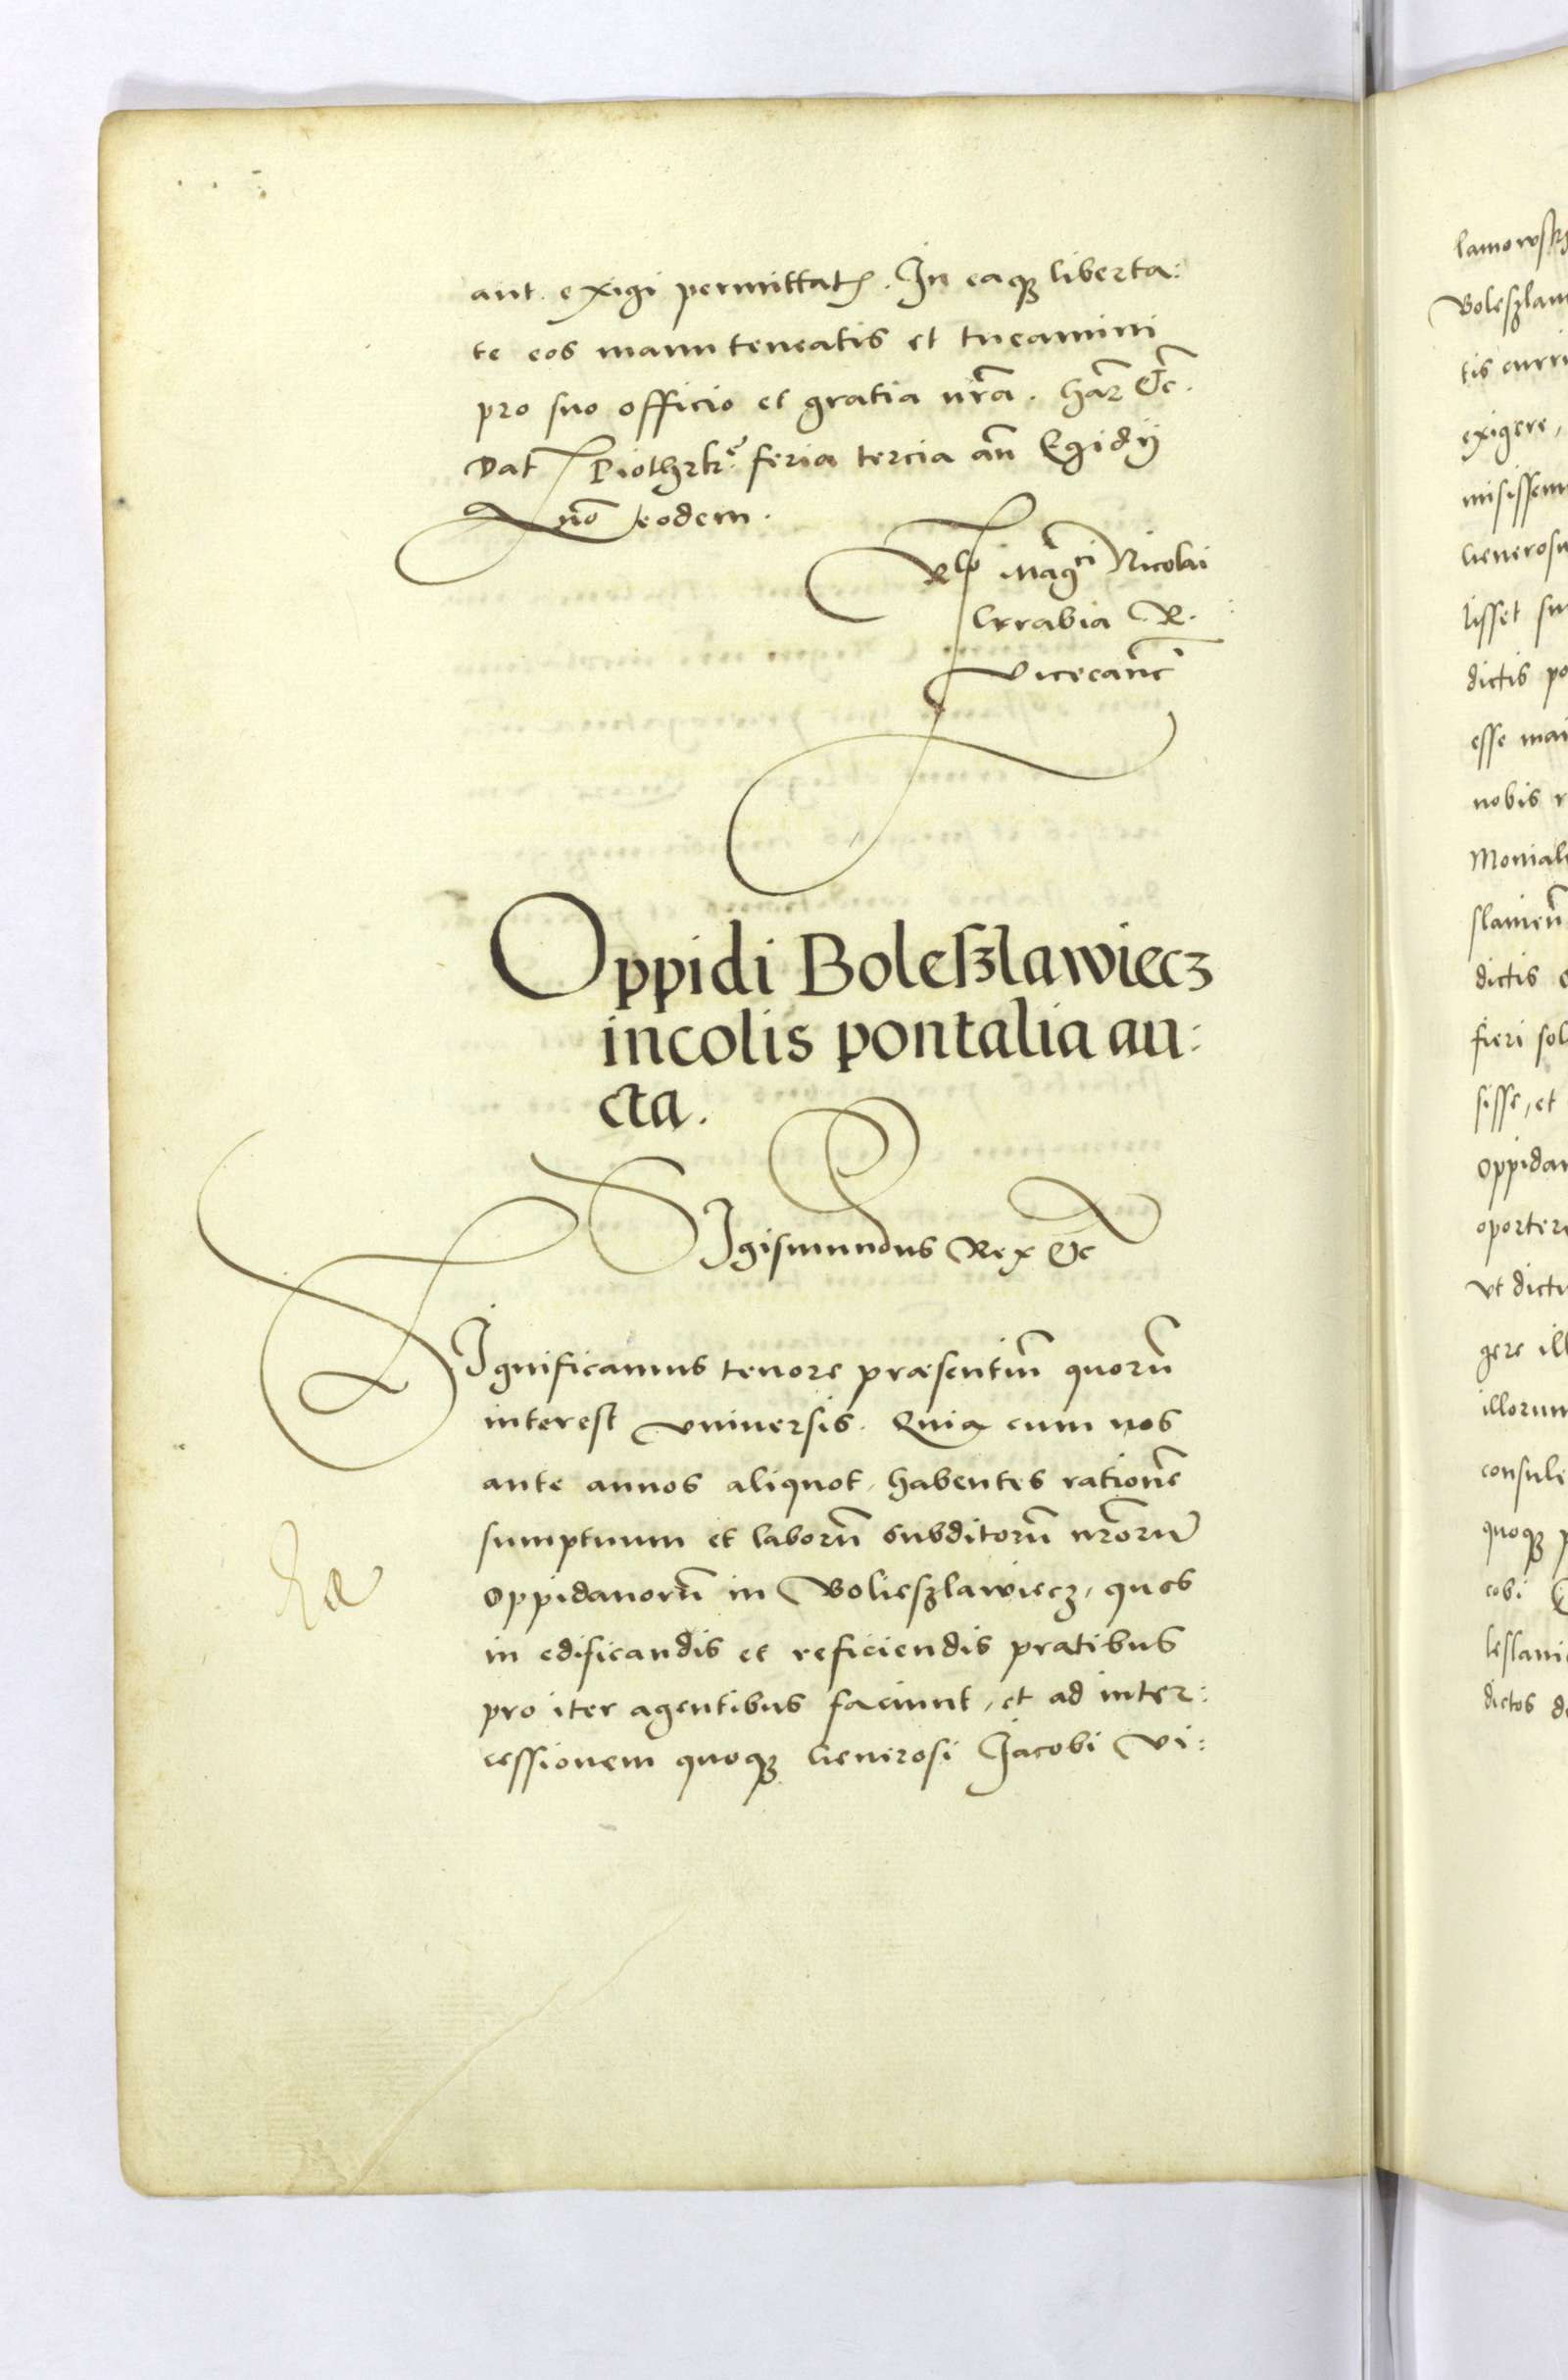 aut exigi permittatꝭ. In eaqꝫ liberta:
te eos manuteneatis et tueamini
pro suo officio et gratia nr̃a. har̃ &c̃.
Dat Piothrk. feria tercia añ Egidij
Año eodem.
Rlo mag^ci Nicolai
Crrabia R.
vicecanc̃
Oppidi Boleszlawiecz
incolis pontalia au:
cta.
Sigismundus Rex &c
Significamus tenore præsentiũ quorũ
interest vniuersis. Quia cum nos
ante annos aliquot, habentes rationẽ
sumptuum et laborũ subditorũ nr̃orũ
oppidanorũ in Bolieszlawiecz, quos
in edificandis et reficiendis pratibus
pro iter agentibus faciunt, et ad inter:
cessionem quoqꝫ Generosi Jacobi Vi:
lamowsk
Boleszlaw
tis curri
exigere,
misissem
Generosu
lisset su
dictis po
esse mai
nobis r
Monial
slauieñ
dictis
fieri sol
sisse, et
oppidan
oportere
vt dictu
gere ill
illorum
consule
quoqꝫ p
cobi
leslaui
dictos d